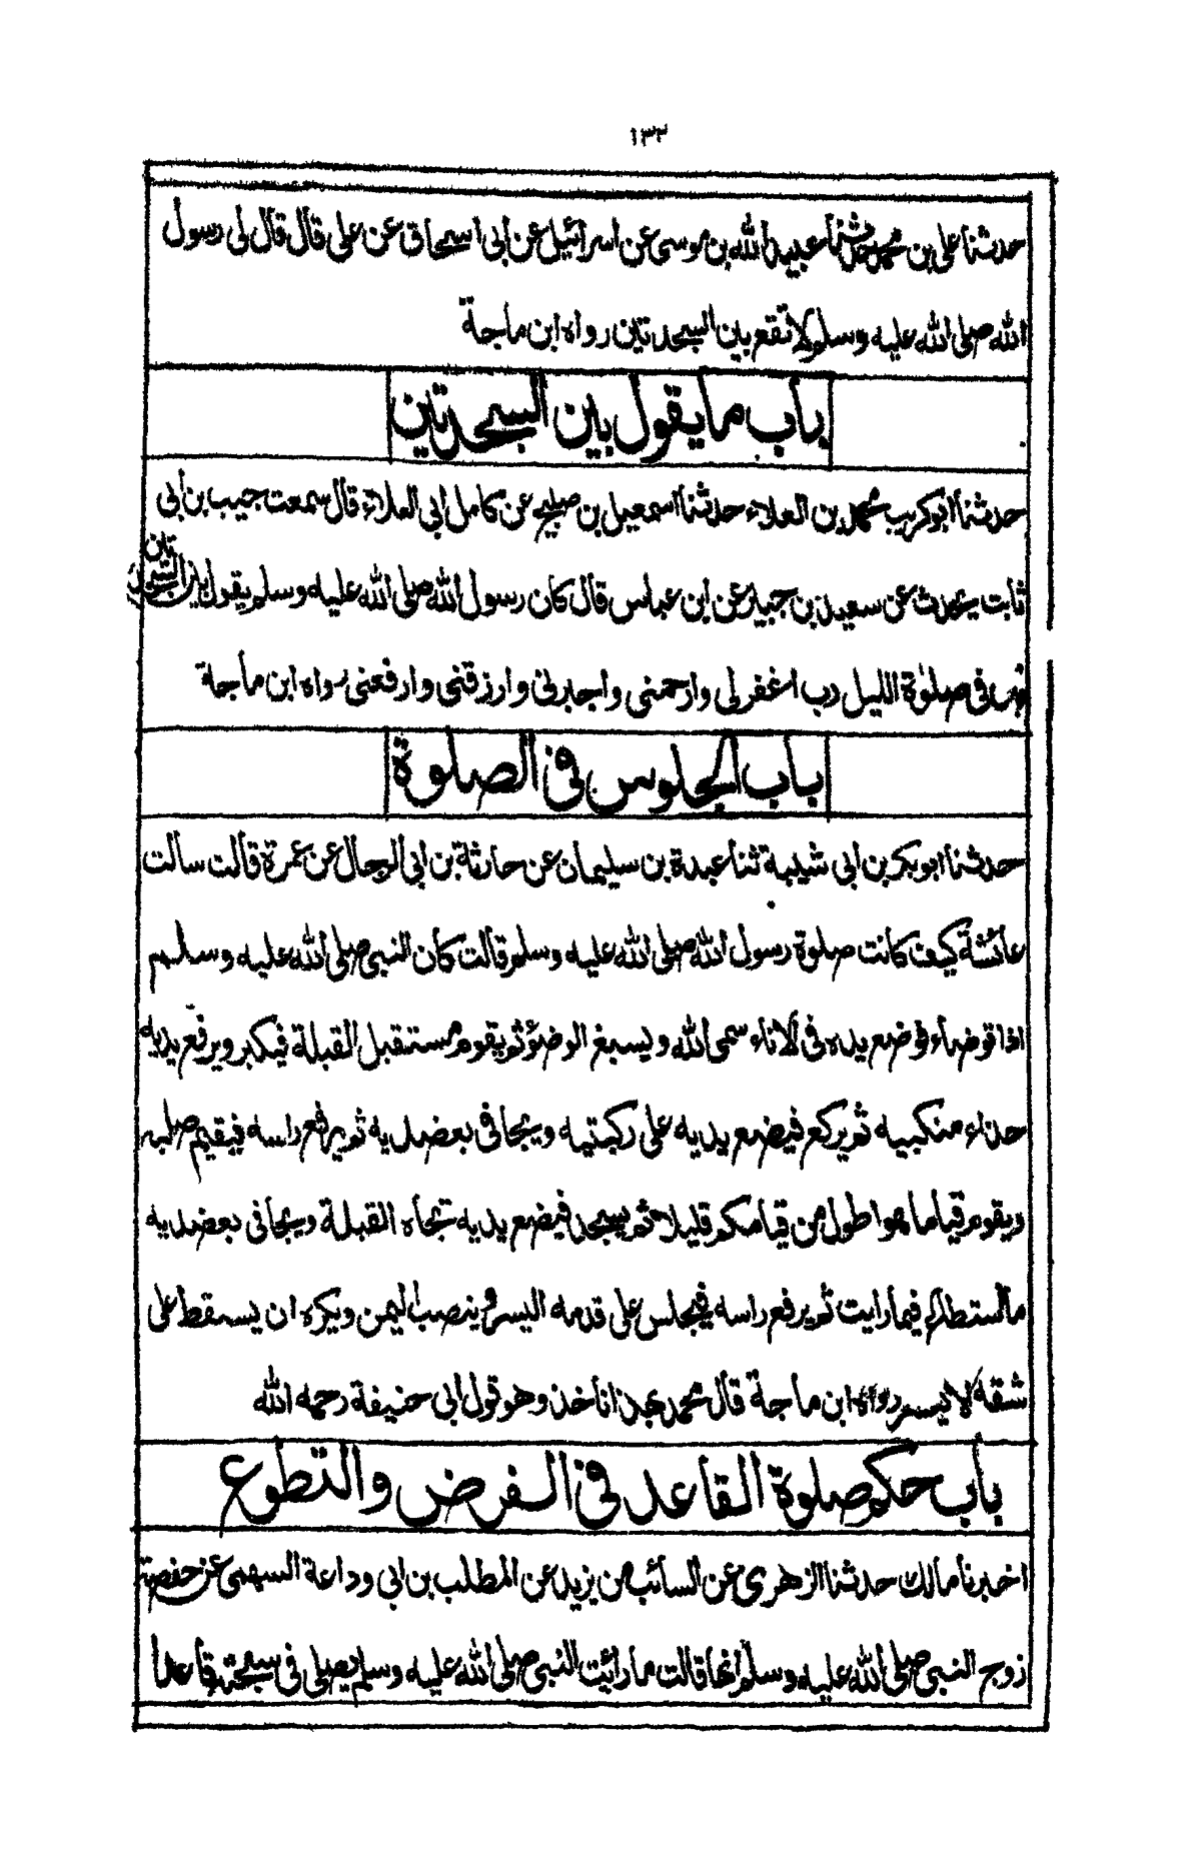 ١٣٢
حدثنا علی بن محمد حدثنا عبید الله بن موسی عن اسرائیل عن ابی اسحاق عن علی قال قال لی رسول
الله صلی الله علیه وسلم لا تقع بین السجدتین رواه ابن ماجة
باب ما یقول بین السجدتین
حدثنا ابو کریب محمد بن العلاء حدثنا اسمعیل بن صبیح عن کامل ابی العلاء قال سمعت حبیب بن ابی
ثابت یحدث عن سعید بن جبیر عن ابن عباس قال کان رسول الله صلی الله علیه وسلم یقول بین السجدتین
فی صلوٰة اللیل رب اغفر لی وارحمنی واجبرنی وارزقنی وارفعنی رواه ابن ماجة
باب الجلوس فی الصلوة
حدثنا ابو بکر بن ابی شیبة ثنا عبدة بن سلیمان عن حارثة بن ابی الرجال عن عمرة قالت سالت
عائشة کیف کانت صلوة رسول الله صلی الله علیه وسلم قالت کان النبی صلی الله علیه وسلم
اذا توضاء فوضع یده فی الاناء سمی الله ویسبغ الوضوٴ ثم یقوم مستقبل القبلة فیکبر ویرفع یدیه
حذاء منکبیه ثم یرکع فیضع یدیه علی رکبتیه ویجافی بعضدیه ثم یرفع راسه فیقیم صلبه
ویقوم قیاما هو اطول من قیامکم قلیلا ثم یسجد فیضع یدیه تجاه القبلة ویجافی بعضدیه
ما استطاع فیما رایت ثم یرفع راسه فیجلس علی قدمه الیسری وینصب الیمن ویکره ان یسقط علی
شقه الایسر رواه ابن ماجة قال محمد بهذا ناخذ وهو قول ابی حنیفة رحمه الله
باب حکم صلوة القاعد فی الفرض والتطوع
اخبرنا مالك حدثنا الزهری عن السائب بن یزید عن المطلب بن ابی وداعة السهمی عن حفصة
زوج النبی صلی الله علیه وسلم انها قالت ما رائیت النبی صلی الله علیه وسلم یصلی فی سبحته قاعدا